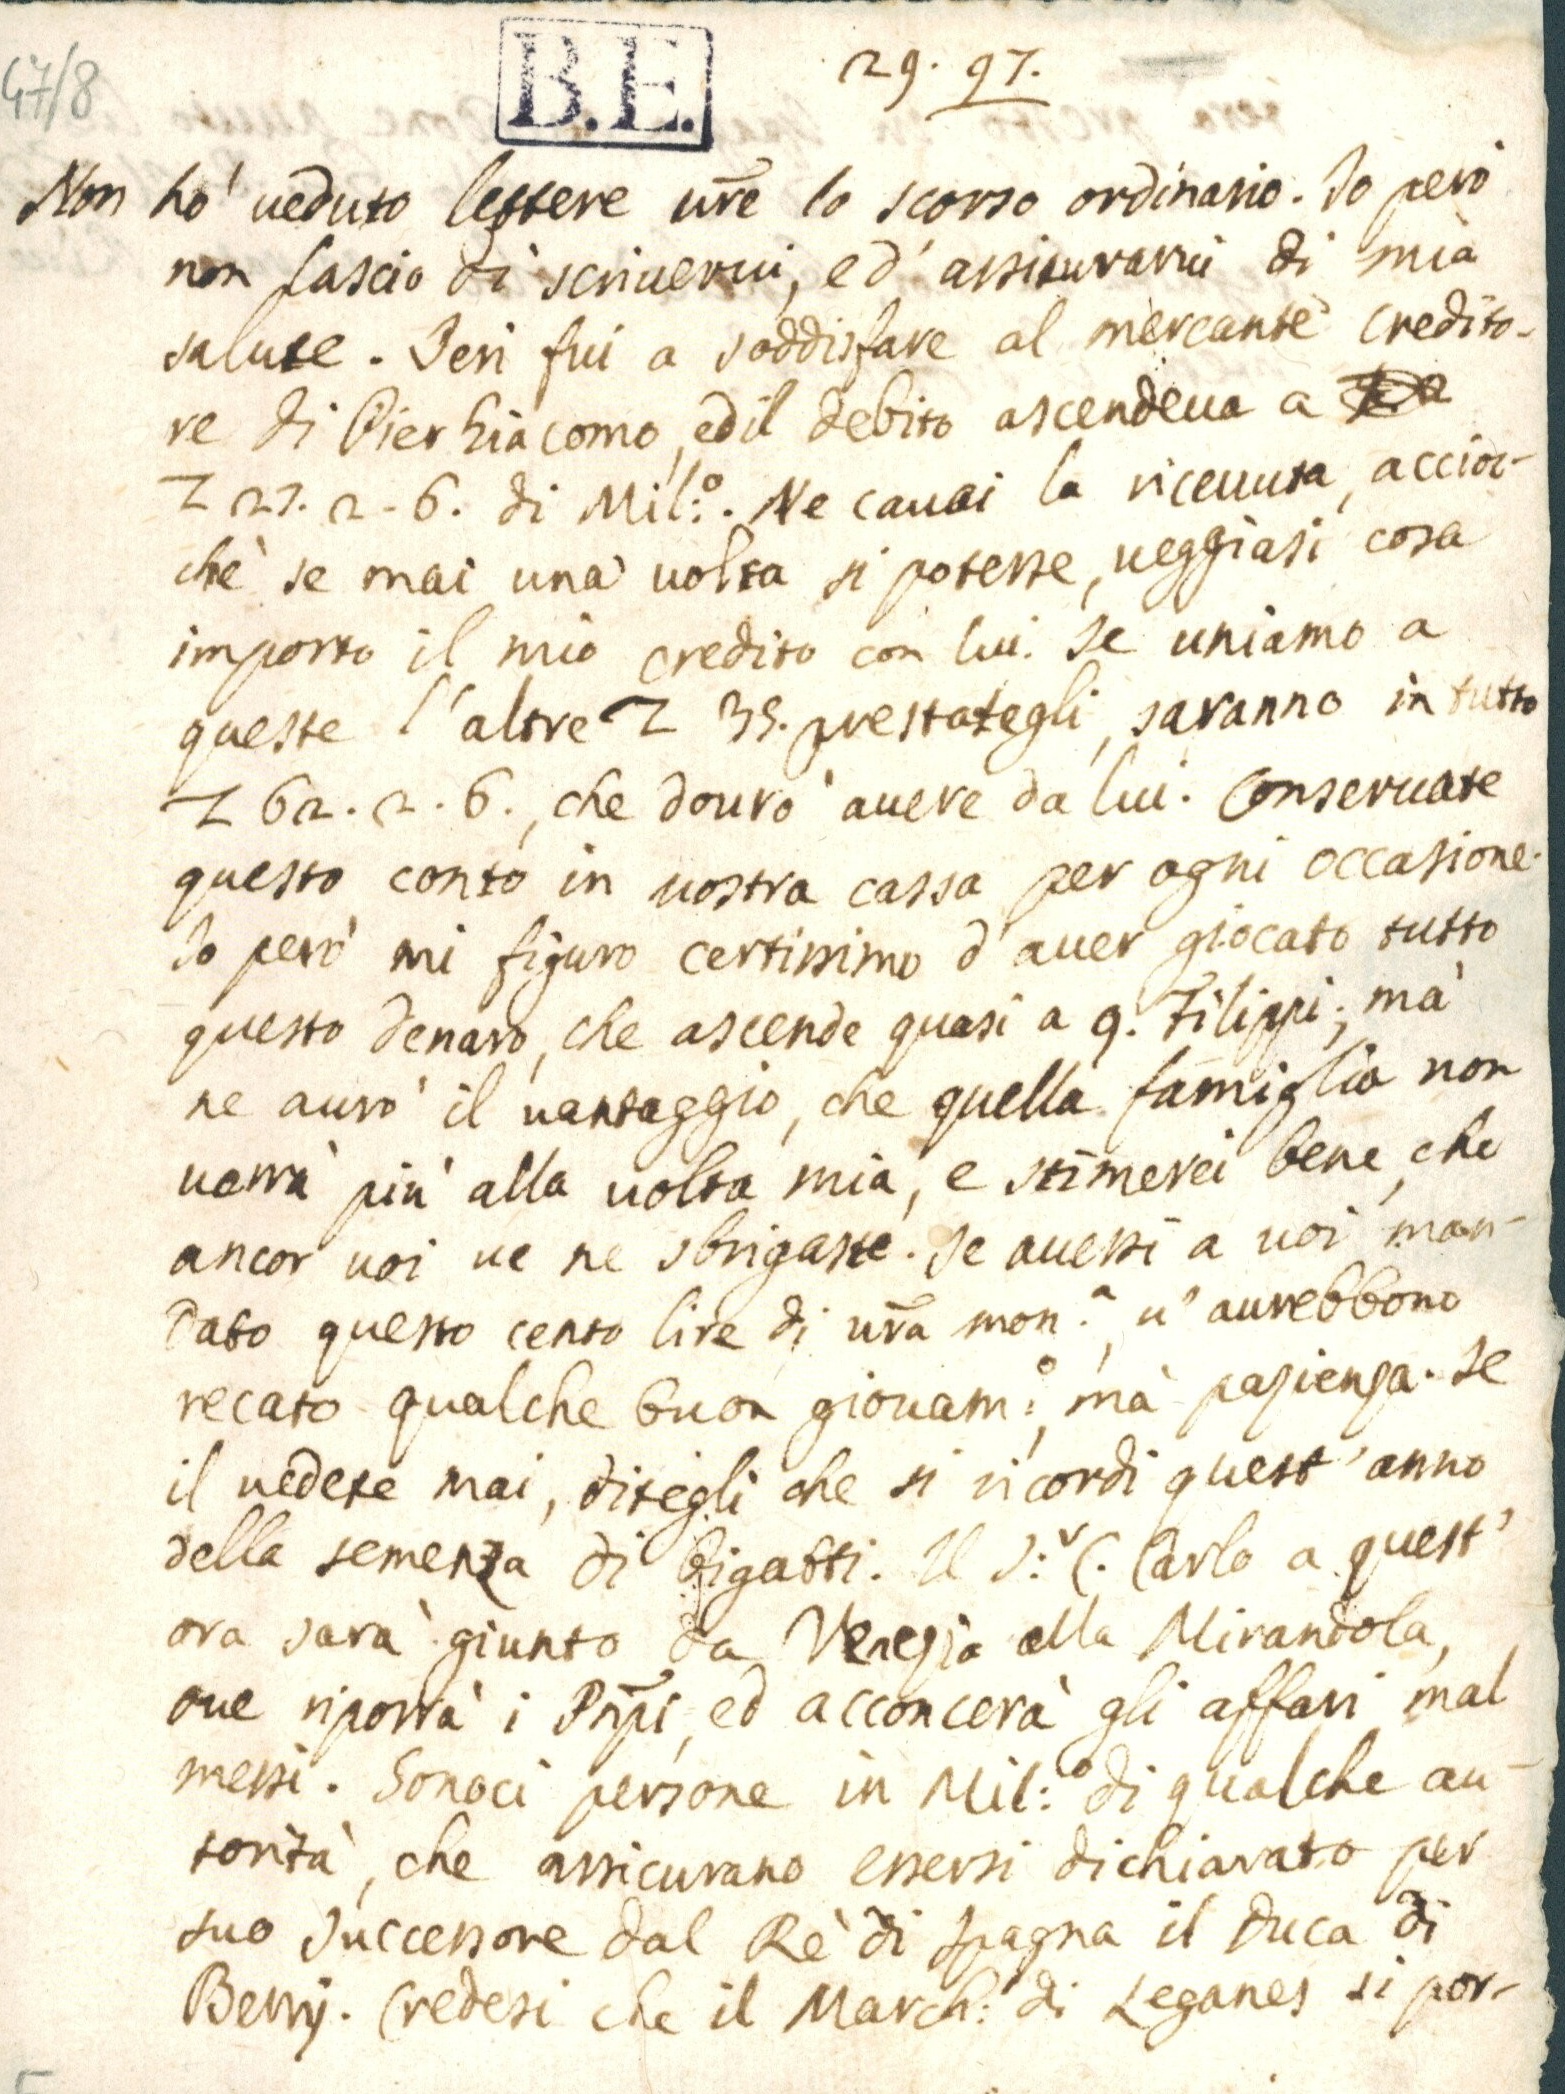 47/8
B.E.
29. 97.
Non hò ueduto lettere vr̃e lo scorso ordinario. Io però
non lascio di scriuerui, ed' assicurarui di mia
salute. Ieri fui a soddisfare al mercante credito-
re di Pier Giacomo, ed il debito ascendeua a
L 27. 2. 6. di Mil:º. Ne cauai la riceuuta, accioc-
chè se mai una uolta si potesse, ueggiasi cosa
importo il mio credito con lui. Se uniamo a
queste l'altre L 35. prestategli, saranno in tutto
L 62. 2. 6., che dourò auere da lui. Conseruate
questo conto in uostra cassa per ogni occasione.
Io però mi figuro certissimo d'auer giocato tutto
questo denaro, che ascende quasi a 9. Filippi; mà
ne aurò il uantaggio, che quella famiglia non
uerrà più alla uolta mia, e stimerei bene, che
ancor uoi ue ne sbrigaste. Se auessi a uoi man-
dato questo cento lire di vr̃a mon.ª, u' aurebbono
recato qualche buon giouam:º, mà pazienza. Se
il uedete mai, ditegli che si ricordi quest'anno
della semenza di bigatti. Il S:ʳ C. Carlo a quest'
ora sarà giunto da Venezia alla Mirandola,
oue riporrà i Pñpi, ed acconcerà gli affari mal
messi. Sonoci persone in Mil:º di qualche au-
torità, che assicurano essersi dichiarato per
suo successore dal Rè di Spagna il Duca di
Berrÿ. Credesi che il March: di Leganes si por-